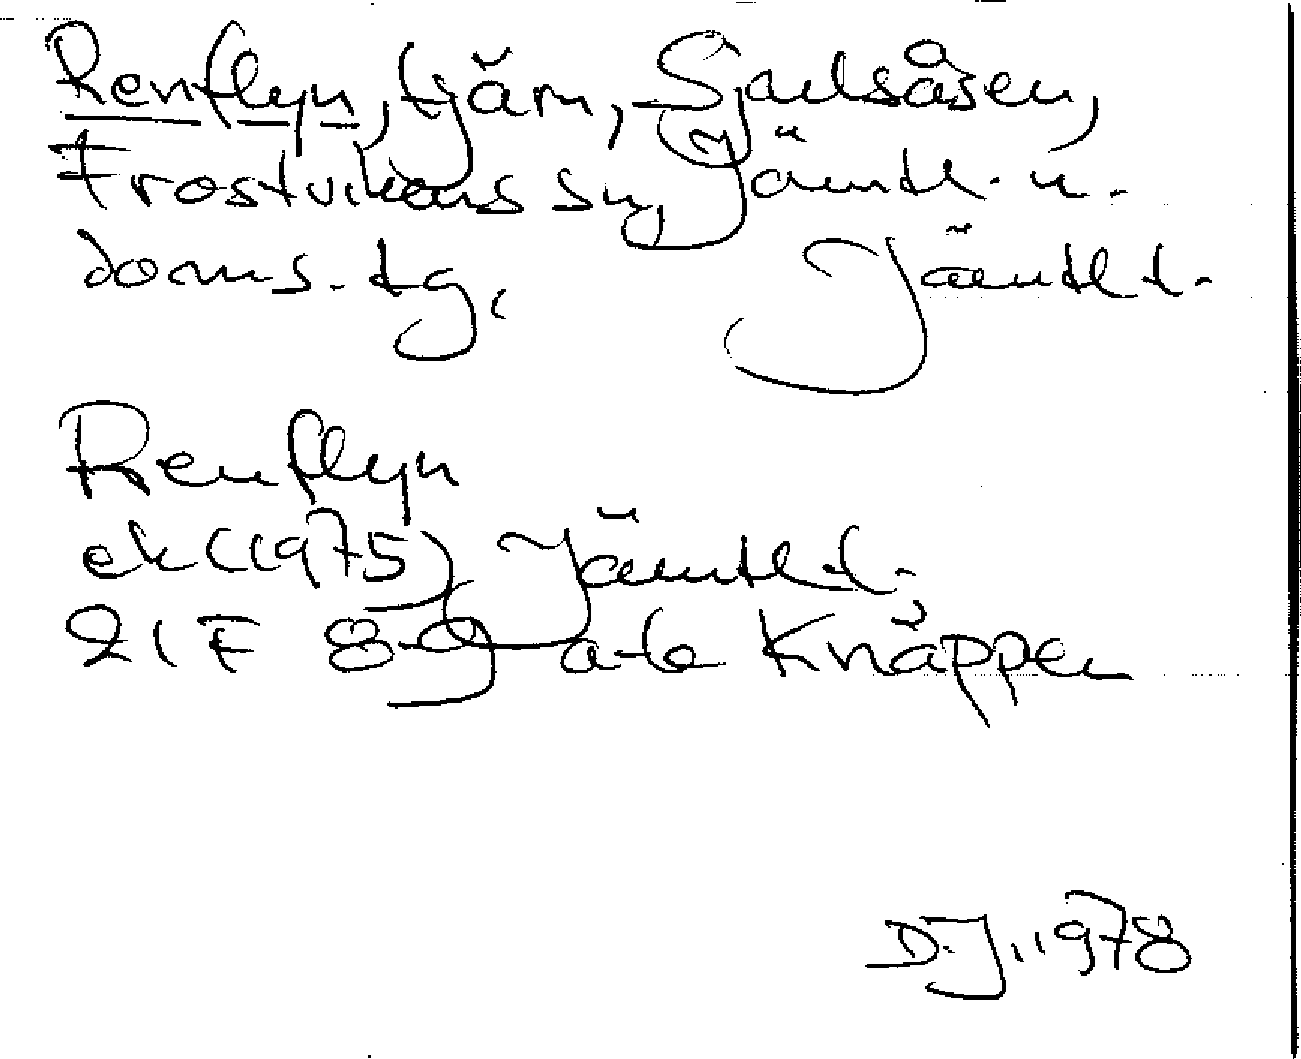 Renflyn, tjärn, Sjaulsåsen,
Frostvikens sn, Jämtl. n.
doms. tg, Jämtl l.
Renflyn
ek (1975) Jämtl. l.
21 F 8-9 a-b Knäppen
D.J. 1978